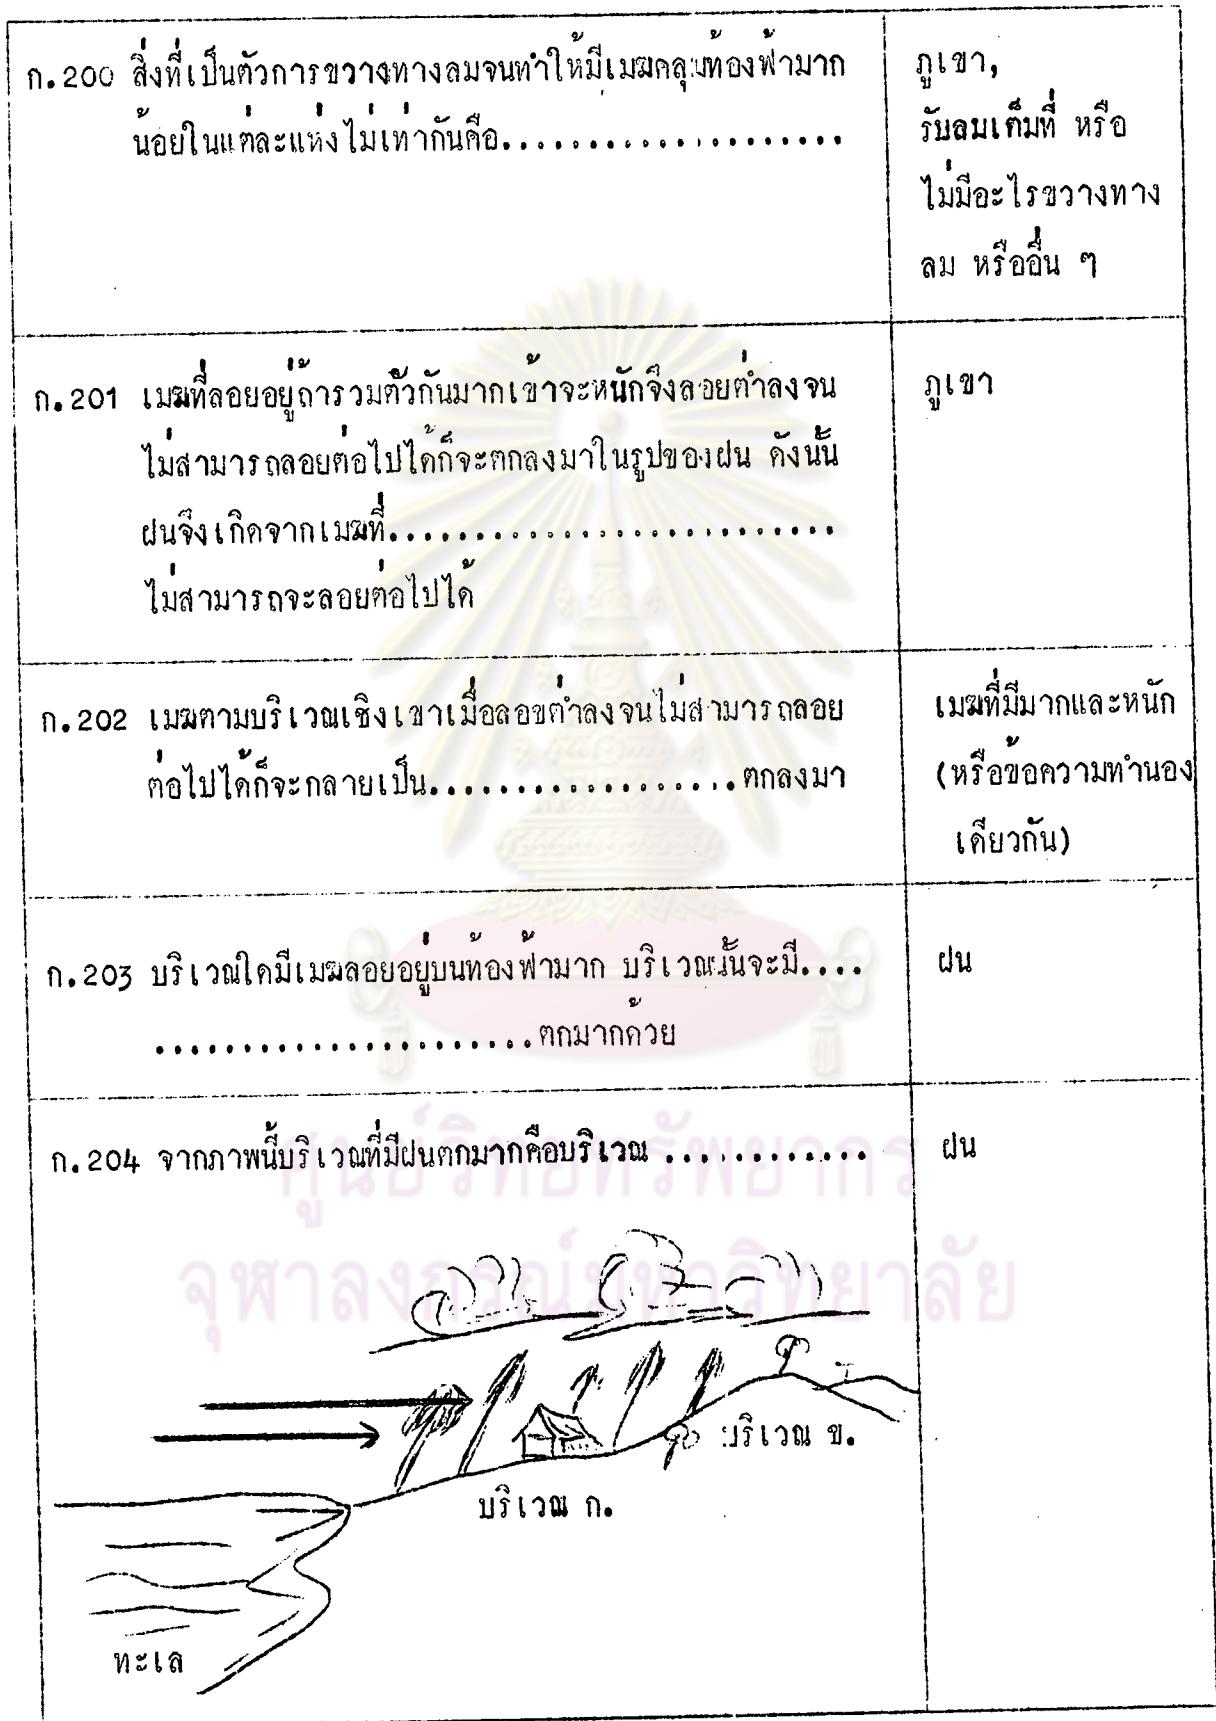 ก.200 สิ่งที่เป็นตัวการขวางทางลมจนทำให้มีเมฆคลุมท้องฟ้ามาก
น้อยในแต่ละแห่งไม่เท่ากันคือ........................
ภูเขา,
รับลมเต็มที่ หรือ
ไม่มีอะไรขวางทาง
ลม หรืออื่น ๆ
ก.201 เมฆที่ลอยอยู่ถ้ารวมตัวกันมากเข้าจะหนักจึงลอยต่ำลงจน
ไม่สามารถลอยต่อไปได้ก็จะตกลงมาในรูปของฝน ดังนั้น
ฝนจึงเกิดจากเมฆที่..............................
ไม่สามารถจะลอยต่อไปได้
ภูเขา
ก.202 เมฆตามบริเวณเชิงเขาเมื่อลอยต่ำลงจนไม่สามารถลอย
ต่อไปได้ก็จะกลายเป็น.....................ตกลงมา
เมฆที่มีมากและหนัก
(หรือข้อความทำนอง
เดียวกัน)
ก.203 บริเวณใดมีเมฆลอยอยู่บนท้องฟ้ามาก บริเวณนั้นจะมี....
......................ตกมากด้วย
ฝน
ก.204 จากภาพนี้บริเวณที่มีฝนตกมากคือบริเวณ ............
ฝน
บริเวณ ข.
บริเวณ ก.
ทะเล
ศูนย์วิทยทรัพยากร
จุฬาลงกรณ์มหาวิทยาลัย